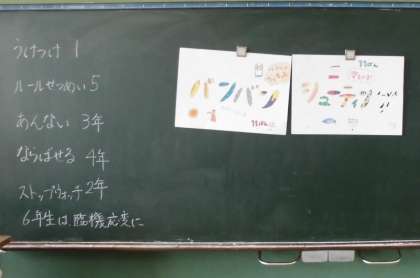 うけつけ 1
ルールせつめい 5
あんない 3年
ならばせる 4年
ストップウォッチ 2年
6年生は臨機応変に
バンバン
シューティング